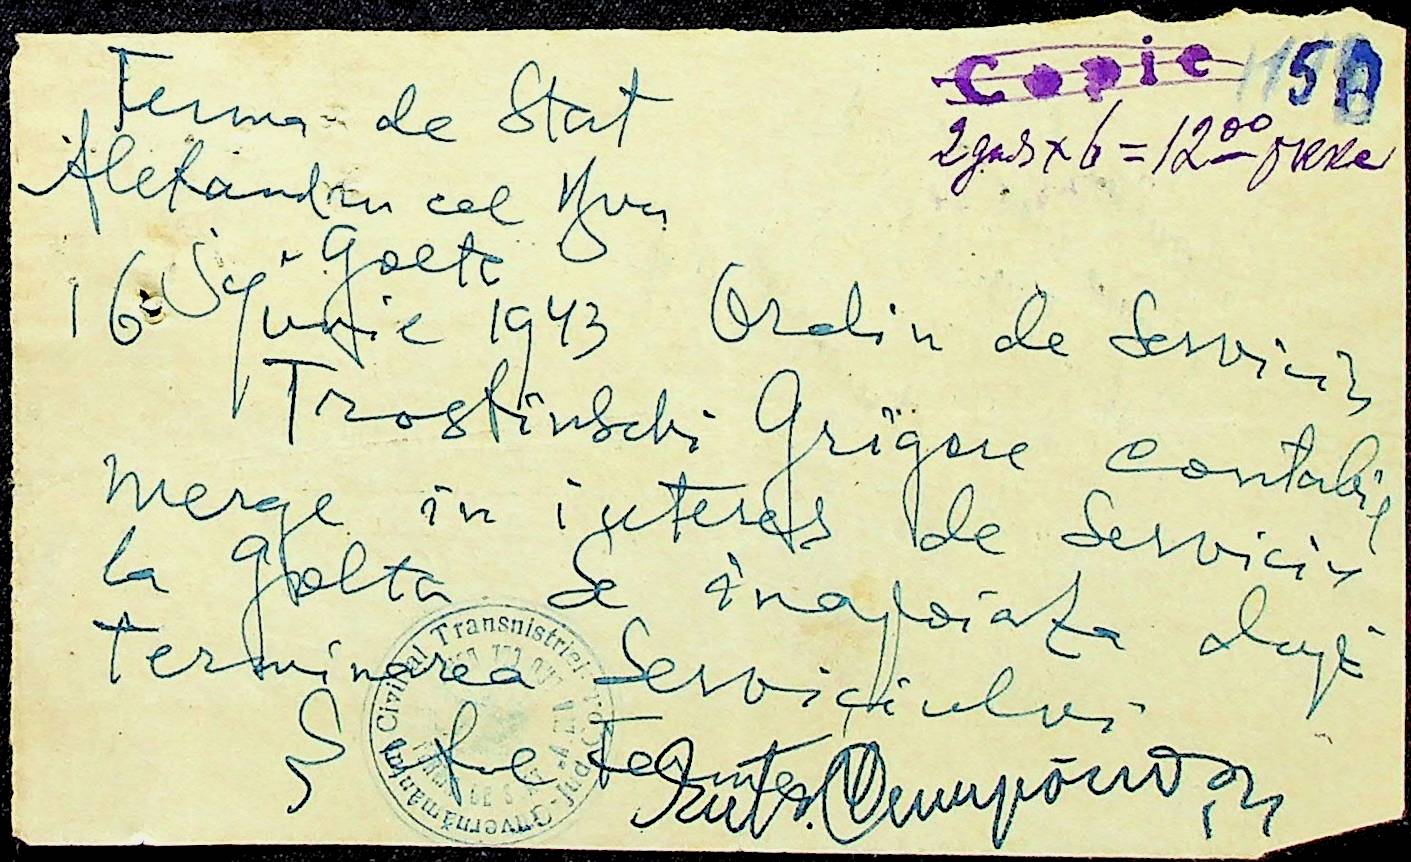 Copie
2 guds x 6 = 12 00
Ferma de Stat
Alexandru cel Bun
Golta
16 Iunie 1943 Ordin de Serviciu
Trostinschi Grigore contabil
merge în interes de Serviciu
la Golta Se înapoiaza după
terminarea Serviciului
Șef Ferme
Guvernământul Civil al Transnistriei